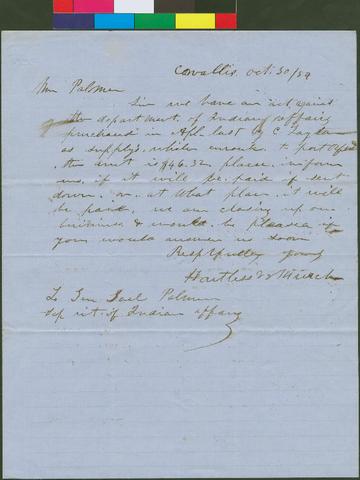 Covallis Oct. 30/54
Mr Palmer
Sir we have an act against
the department of Indians affairs
purchased in Apl. last by C Taylor
as supplys. while enroute to port Orford
the amt is $46.32, please inform
us, if it will be paid if sent
down. or. at What place it will
be paid. we are closing up our
business & would be pleased if
you would answer us soon
Respectfulley yours
Hartless &
To Gen Joel Palmer
Sup int. of Indian affairs